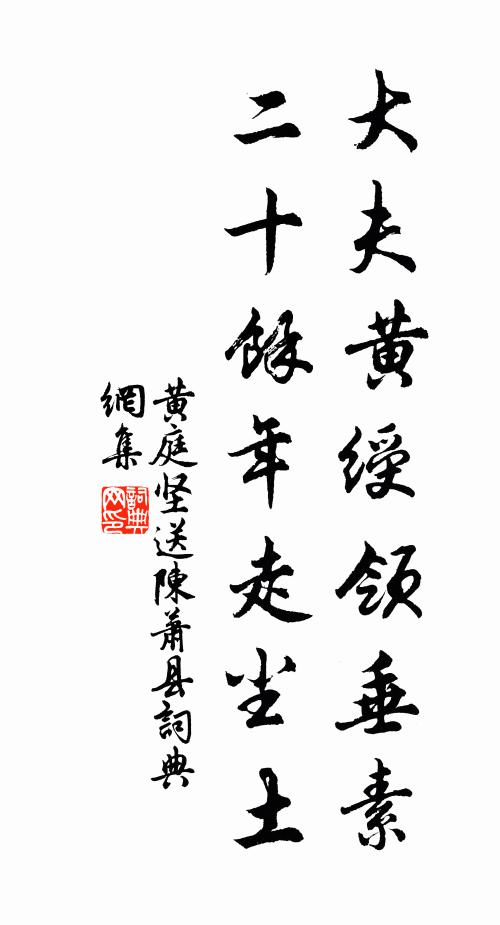 大夫黄綬領垂素
二十餘年走尘土
黄庭坚送陳蕭县詞典
網集
詞典网印